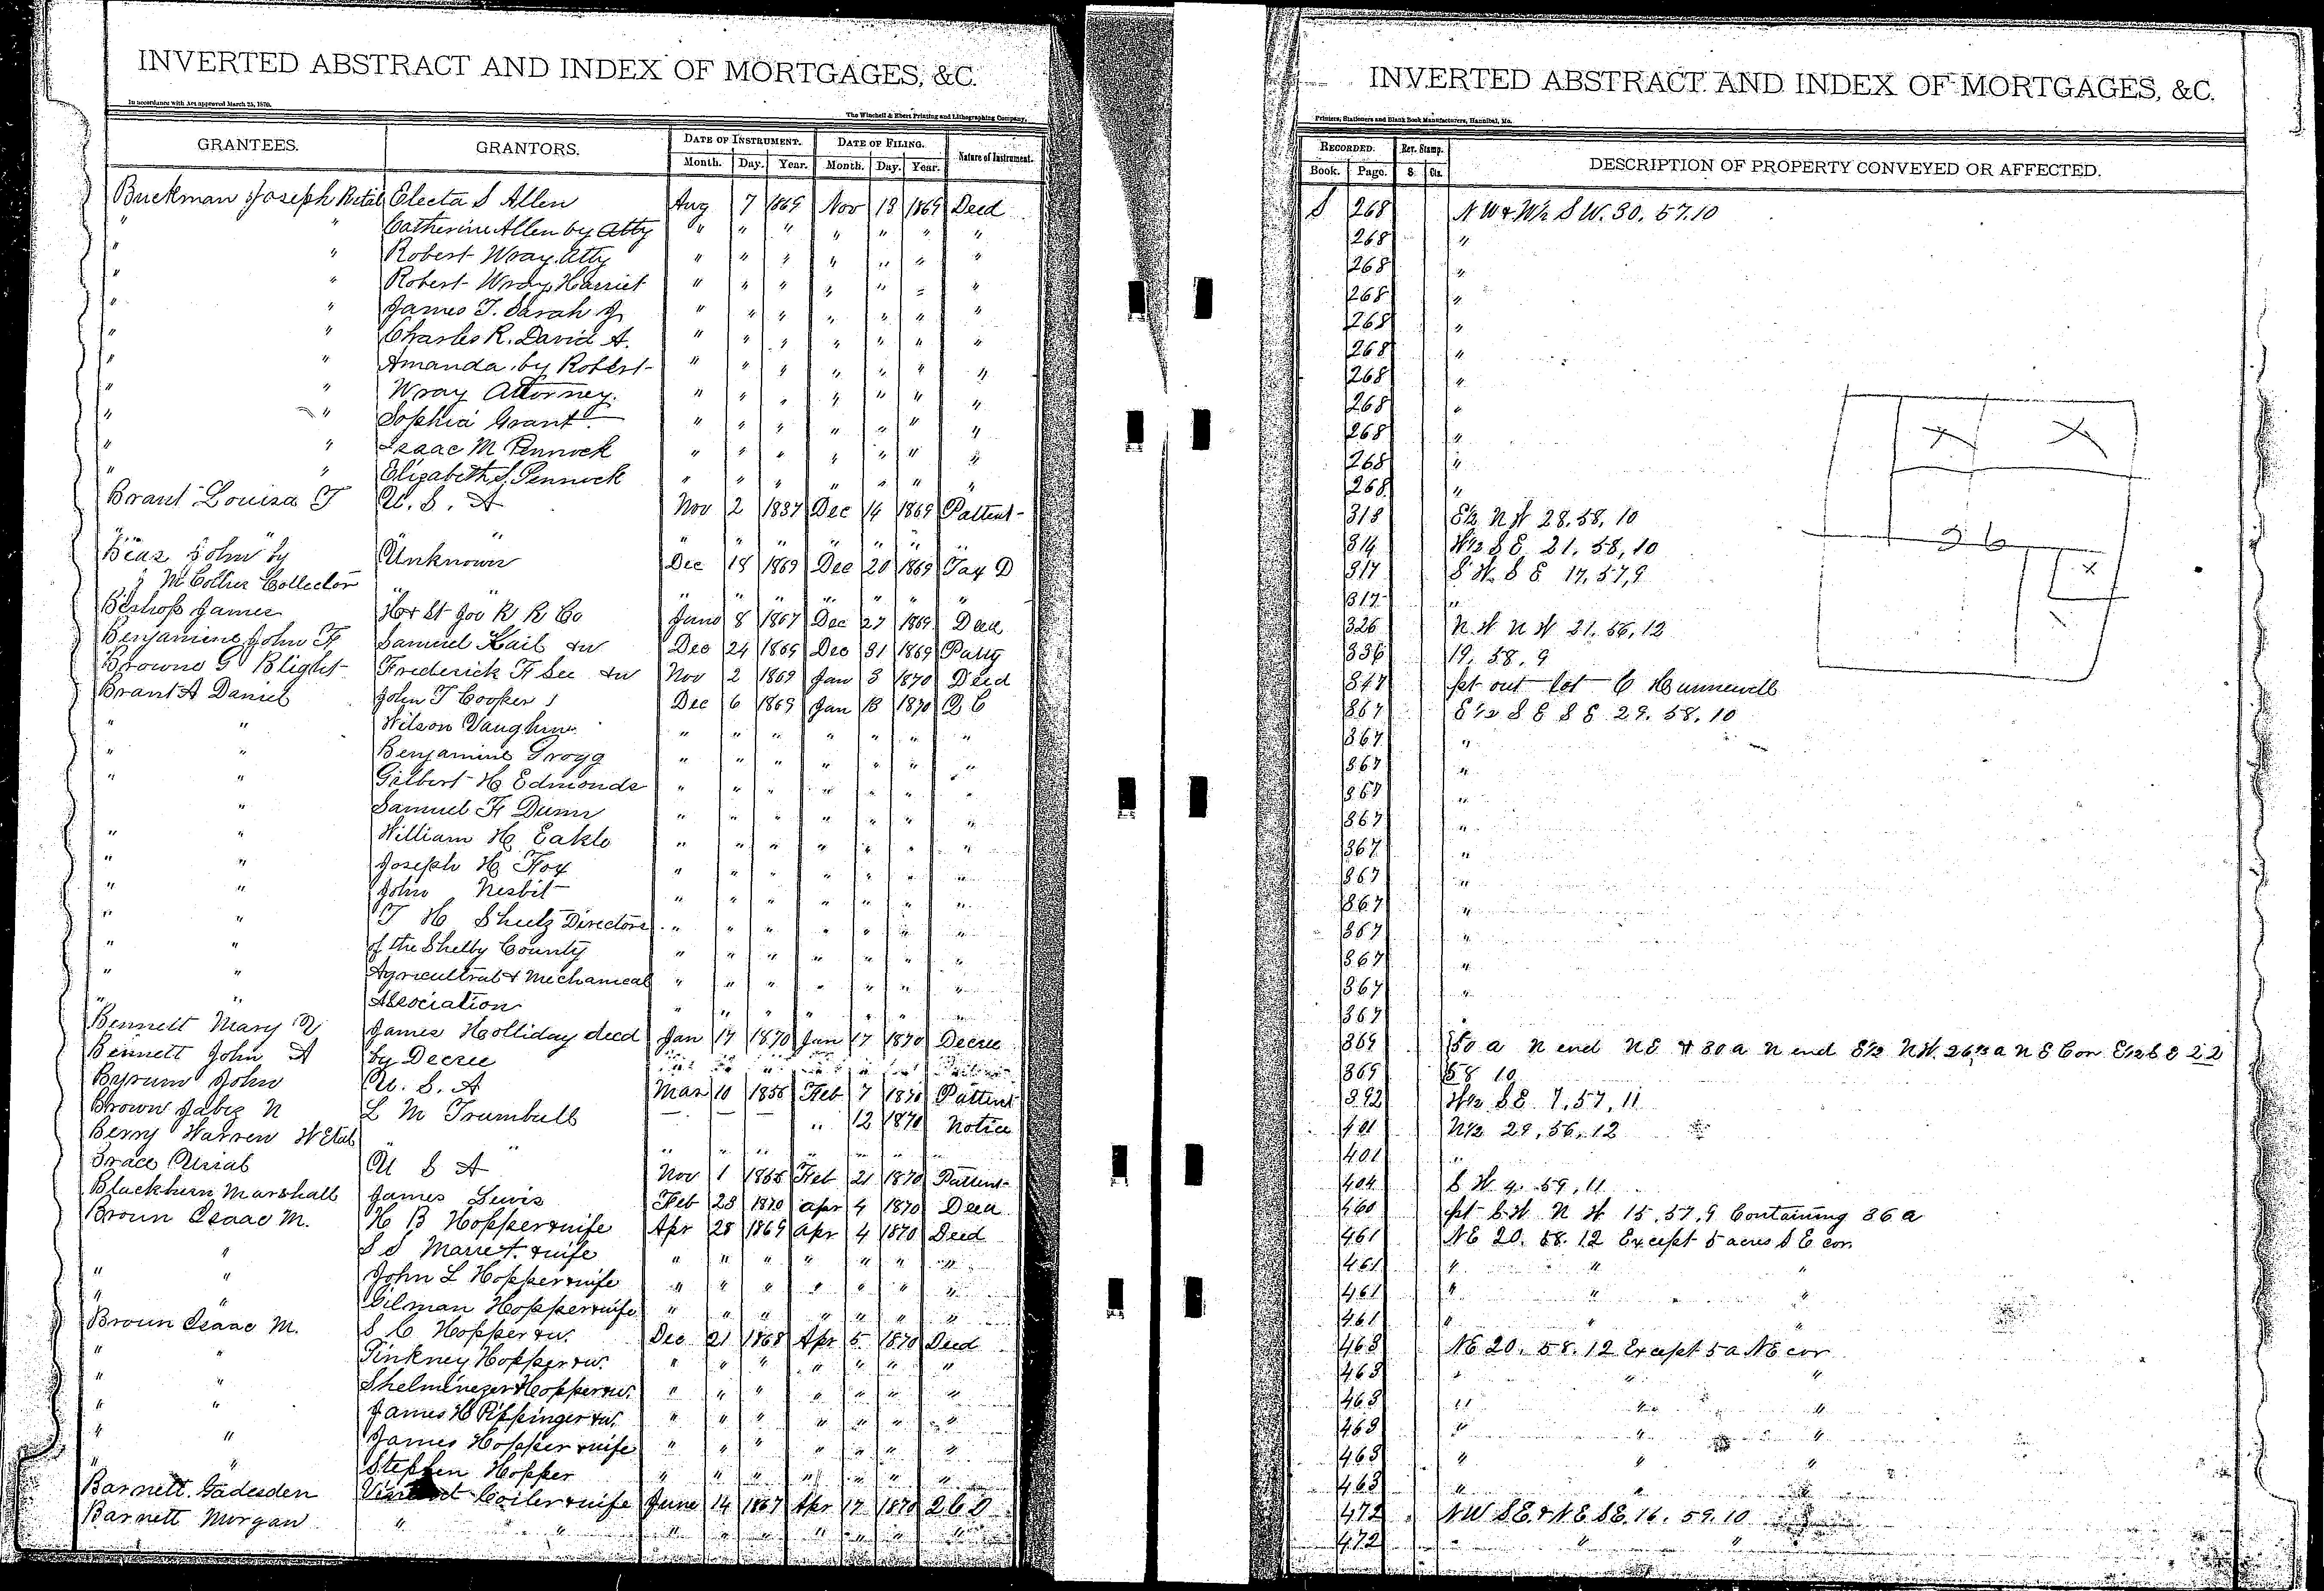 INVERTED ABSTRACT AND INDEX OF MORTGAGES, &C.
In accordance with Act approved March 25, 1870.
The Winchell & Ebert Printing and Lithographing Company,
GRANTEES. GRANTORS. DATE OF INSTRUMENT. DATE OF FILING. Nature of Instrument.
Month. Day. Year. Month. Day. Year.
Buckman Joseph Electa S Allen Aug 7 1869 Nov 13 1869 Deed
" " Catherine Allen by Atty " " " " " " "
" " Robert Wray Atty " " " " " " "
" " Robert Wray Harriet " " " " " " "
" " James T. Sarah J " " " " " " "
" " Charles R. David A. " " " " " " "
" " Amanda by Robert " " " " " " "
" " Wray Attorney. " " " " " " "
" " Sophia Grant " " " " " " "
" " Isaac M Pennock " " " " " " "
" " Elizabeth S. Pennock " " " " " " "
Brant Louisa T U. S. A Nov 2 1837 Dec 14 1869 Pattent
" " " " " " " " " "
John by Unknown Dec 18 1869 Dec 20 1869 Tax D
Collector " " " " " " " "
Bishop James H & St Joe R R Co June 8 1867 Dec 27 1869 Deed
Benjamine John F Samuel Kail & w Dec 24 1869 Dec 31 1869
Browne G Blight Frederick F See & w Nov 2 1869 Jan 3 1870 Deed
Brant A Daniel John T Cooper Dec 6 1869 Jan 13 1870 Q C
" " Wilson Vaughn " " " " " " "
" " Benjamine Grogg " " " " " " "
" " Gilbert H Edmonds " " " " " " "
" Samuel F Dunn " " " " " " "
" " William H Eakle " " " " " " "
" " Joseph H Fox " " " " " " "
" " John Nesbit " " " " " " "
" " T H Sheetz Directors " " " " " " "
" " of the Shelby County " " " " " " "
" " Agricultral & Mechanical " " " " " " "
" " Association " " " " " " "
Bennett Mary James Holliday decd Jan 17 1870 Jan 17 1870 Decree
Bennett John A by Decree " " " " " "
Byrum John U. S. A Mar 10 1856 Feb 7 1870 Pattent
Brown Jabez N L M Trumbull — — — " 12 1870 Notice
Berry Warren W Etal " " " " " " " " "
Uriah U S A Nov 1 Feb 21 1870 Pattent
Blackburn Marshall James Lewis Feb 23 1870 Apr 4 1870 Deed
Broun Isaac M. H B Hopper & wife Apr 28 1869 Apr 4 1870 Deed
" & wife " " " " " " "
" " John L Hopper & wife " " " " " " "
" " Gilman Hopper & wife " " " " " " "
Broun Isaac M. S C Hopper & w. Dec 21 1868 Apr 5 1870 Deed
" " Pinkney Hopper & w. " " " " " " "
" " Hopper & w. " " " " " " "
" " James H Pippinger & w. " " " " " " "
" " James Hopper & wife " " " " " " "
" " Stephen Hopper " " " " " " "
Barnett Gadesden Coiler & wife June 14 1867 Apr 17 1870
Barnett Morgan " " " " " " " "
INVERTED ABSTRACT AND INDEX OF MORTGAGES, &C.
Printers, Stationers and Blank Book Manufacturers, Hannibal, Mo.
RECORDED. Rev. Stamp. DESCRIPTION OF PROPERTY CONVEYED OR AFFECTED.
Book. Page. $. Cts.
S 268 NW & W½ SW. 30. 57.10
268 "
268 "
268 "
268 "
268 "
268 "
268 "
268 "
268 "
268 "
313 E½ NW 28. 58. 10
314 W½ SE 21. 58, 10
317 SW SE 17, 57, 9
317 "
326 NW NW 21. 56, 12
336 19, 58. 9
347 pt out lot C Hunnewell
367 E½ SE SE 29. 58. 10
367 "
367 "
367 "
367 "
367 "
367 "
367 "
367 "
367 "
367 "
367
369 50 a N end NE & 80 a N end E½ NW. 26, a NE Cor E½ SE 22
369 58 10
392 W½ SE 7, 57, 11
401 N½ 29, 56, 12
401 "
404 SW 4. 59, 11
460 pt SW NW 15, 57, 9 Containing 36 a
461 NE 20. 58. 12 Except 5 acres SE cor
461 " " "
461 " " "
461 " " "
463 NE 20. 58. 12 Except 5 a NE cor
463 " " "
463 " " "
463 " " "
463 " " "
463 " "
472 NW SE & NE SE. 16. 59. 10
472 " " "
X X
26
X